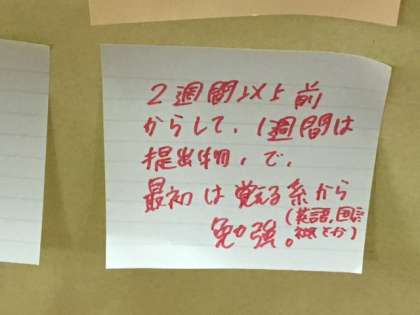 2週間以上前
からして、1週間は
提出物、で、
最初は覚える系から
勉強。(英語、回路
とか)